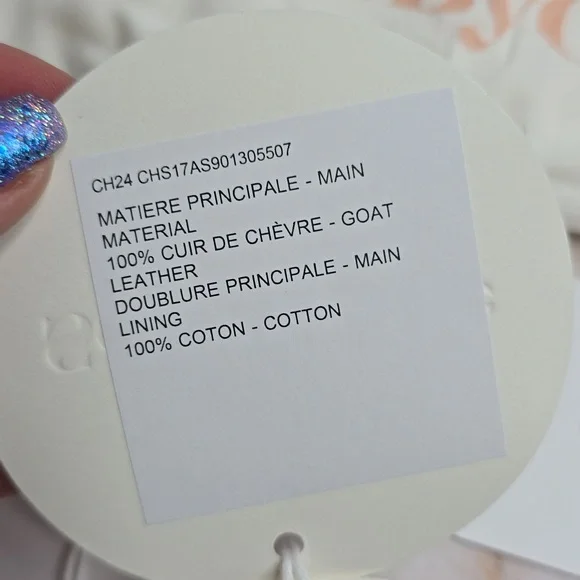 CH24 CHS17AS901305507
MATIERE PRINCIPALE - MAIN
MATERIAL
100% CUIR DE CHÈVRE - GOAT
LEATHER
DOUBLURE PRINCIPALE - MAIN
LINING
100% COTON - COTTON